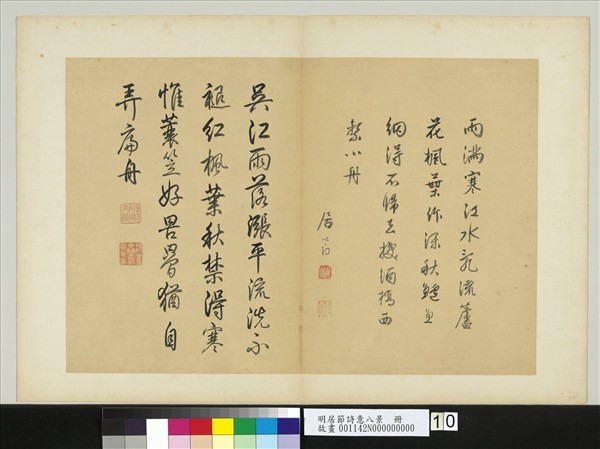 雨滿寒江水亂流蘆
花楓葉作深秋鱸魚
網得不歸去換酒橋西
繫小舟
居節
吳江雨落漲平流洗不
褪紅楓葉秋禁得寒
惟蓑笠好罟罾猶自
弄扁舟
明居節詩意八景 冊
故畫 001142N000000000
10